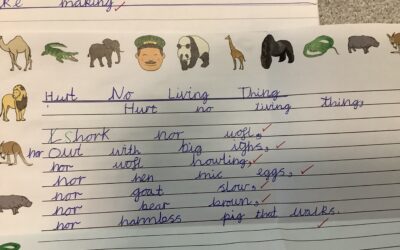 ke making,
Hurt No Living Thing
Hurt no living thing,
shork nor wofl,
nor Owl with big ighs,
nor wofl howling,
nor hen mic eggs,
nor goat slow,
nor bear brown,
nor harmless pig that walks.